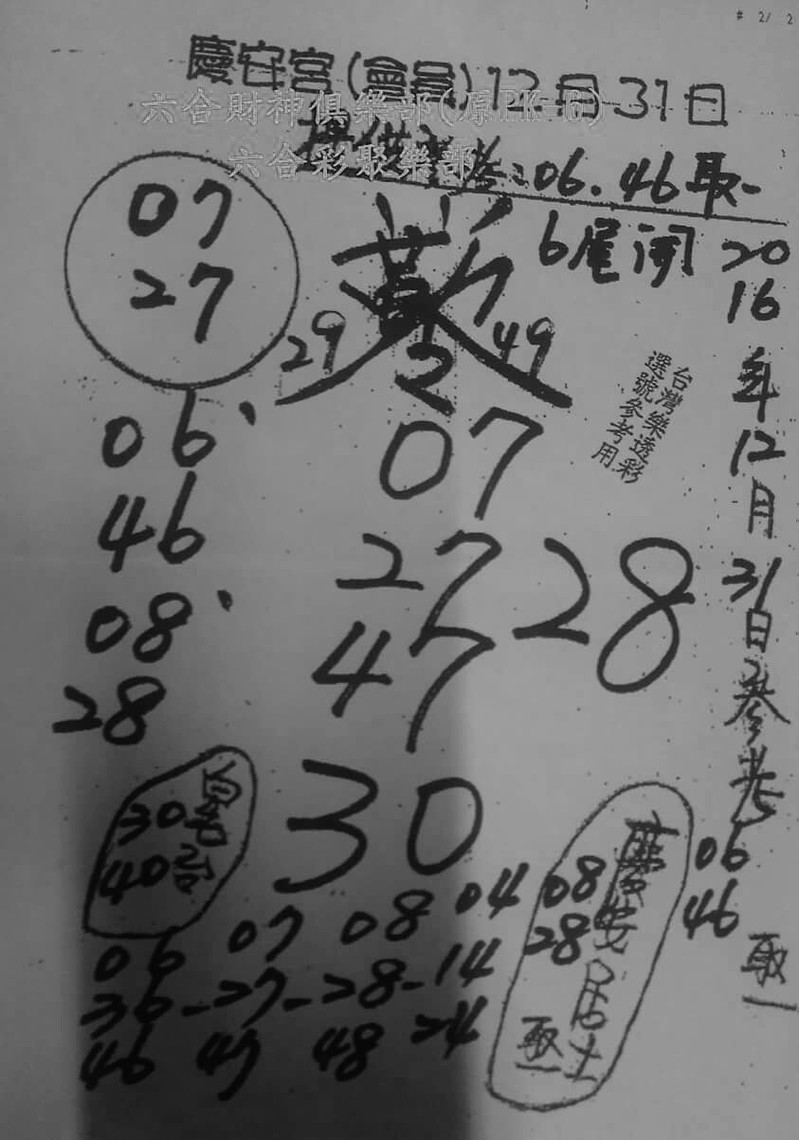 # 2/ 2
慶安宮(會員)12月31日
六合財神俱樂部(原PK-6)
六合彩聚樂部
06.46取一
6尾開
07
27
29 2 49
06
46
08
28
07
27 28
47
30
台灣樂透彩
選號參考用
2016年12月31日參考
06
46
取一
30
40
慶安居士
08
28
取一
06 07 08 04
36-27-28-14
46 47 48 24